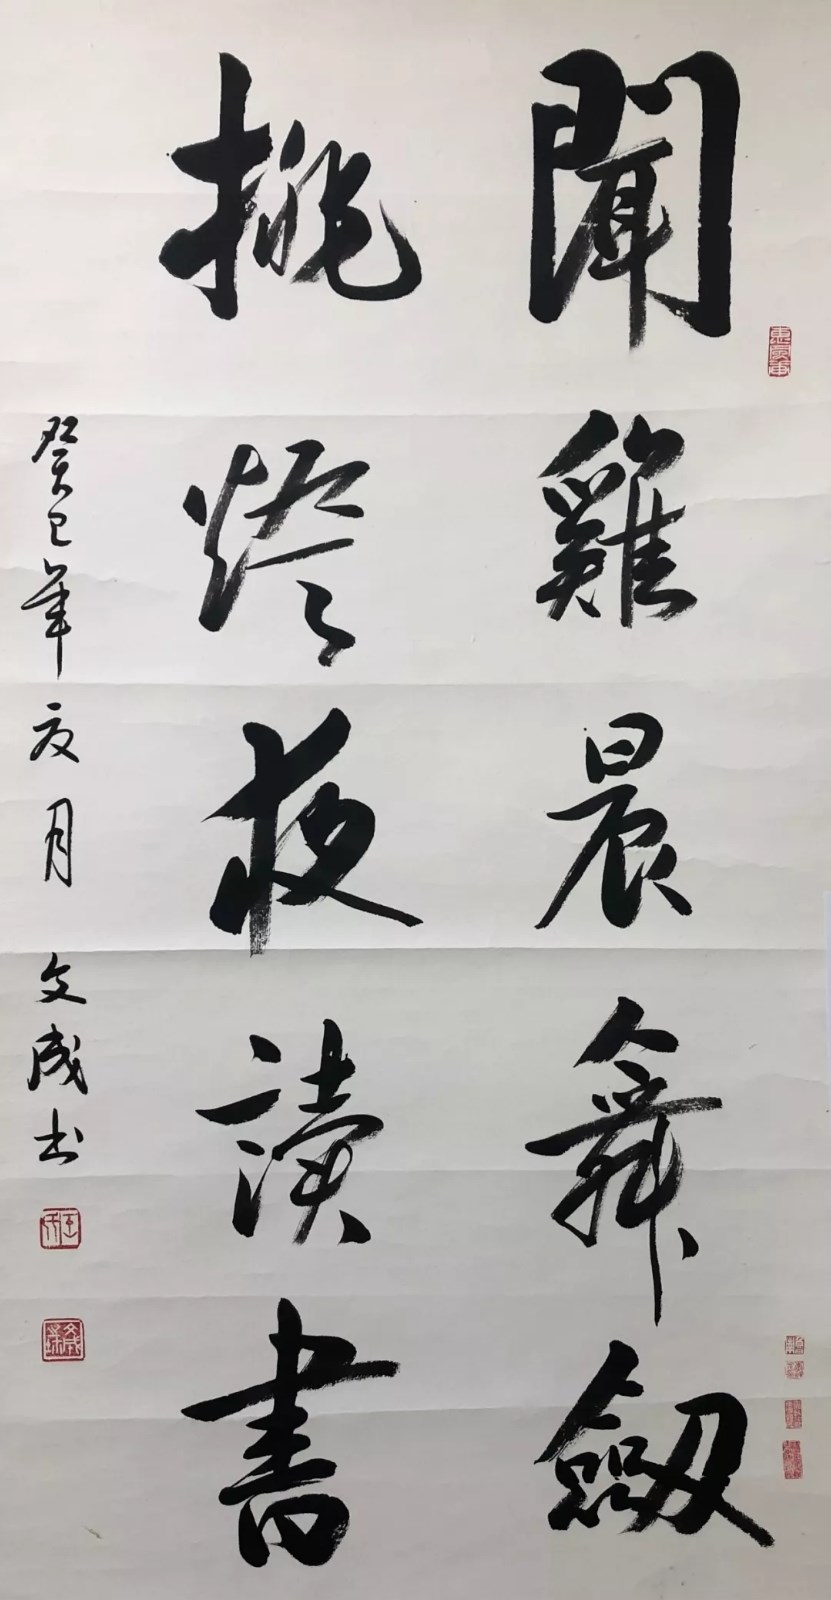 聞雞晨舞劔
挑燈夜讀書
癸巳年夏月文成书